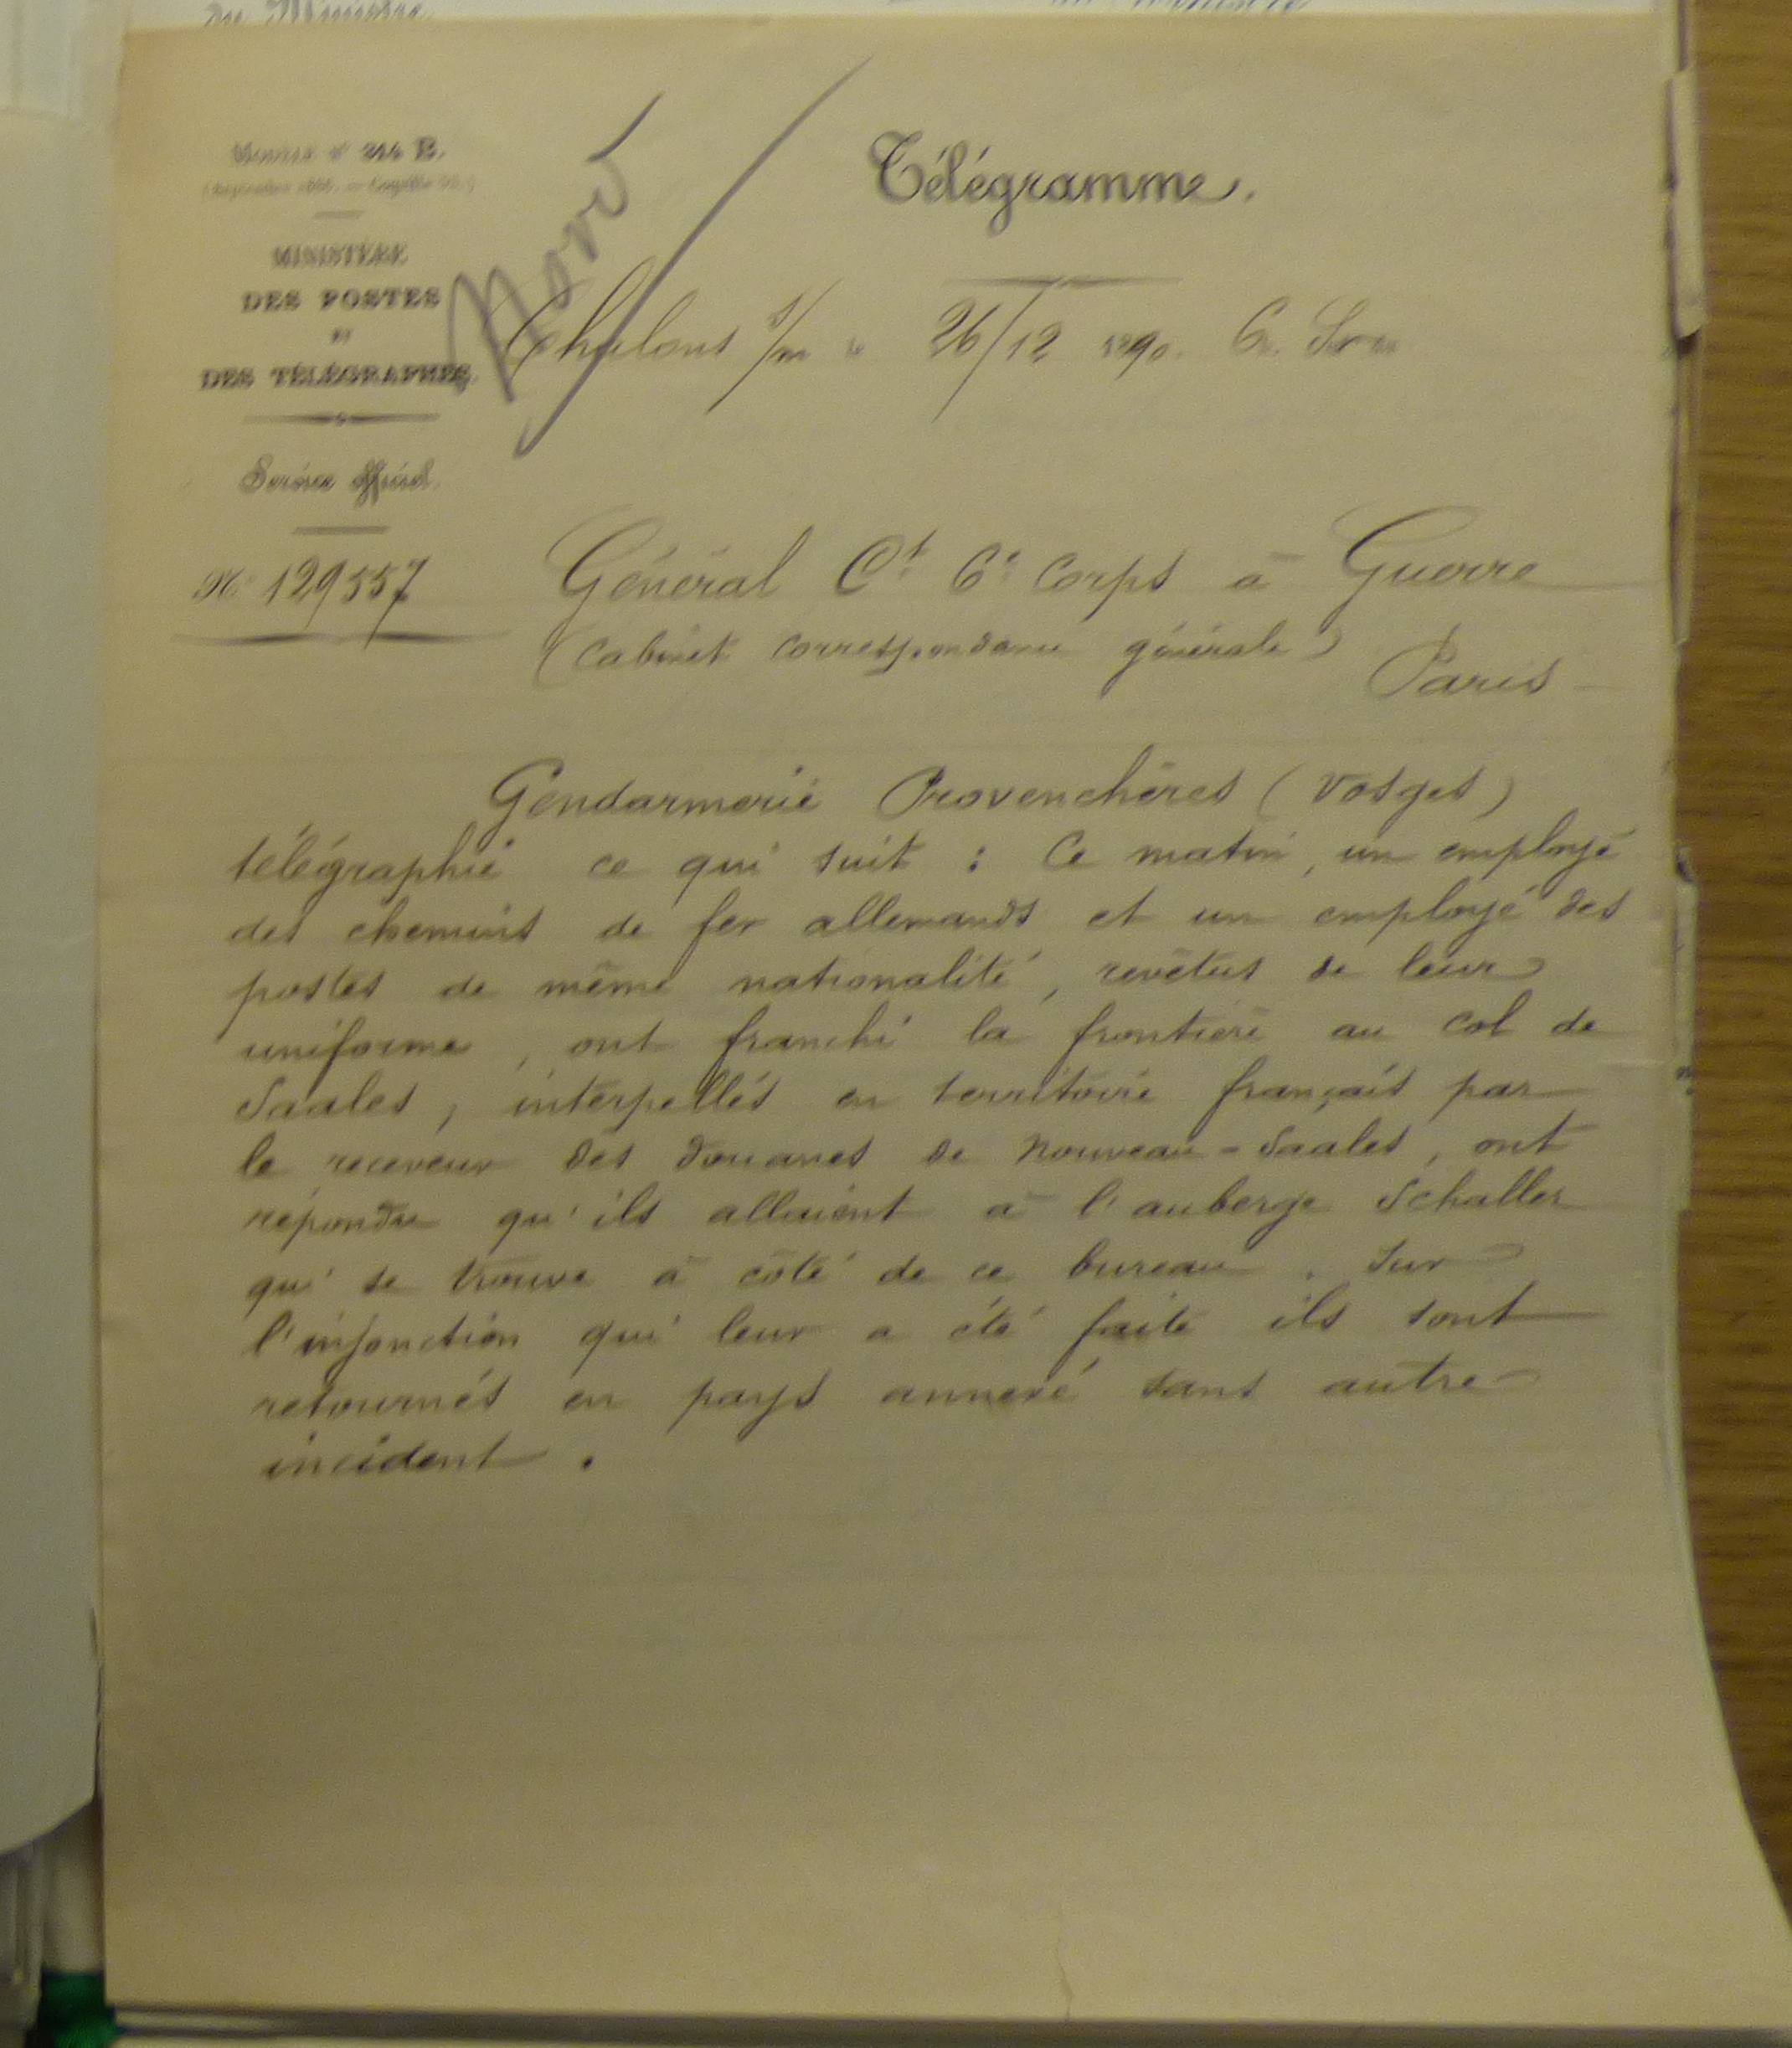 du Ministre
214 B.
MINISTÈRE
DES POSTES
ET
DES TÉLÉGRAPHES.
Service officiel.
N° 129557
Télégramme.
Chalons s/m le 26/12 1890. 6h.
Général Ct 6e Corps à Guerre
(Cabinet correspondance générale)
Paris
Gendarmerie Provenchères (Vosges)
télégraphie ce qui suit : Ce matin, un employé
des chemins de fer allemands et un employé des
postes de même nationalité, revêtus de leur
uniforme, ont franchi la frontière au col de
Saales, interpellés en territoire français par
le receveur des douanes de Nouveau-Saales, ont
répondu qu'ils allaient à l'auberge Schaller
qui se trouve à côté de ce bureau. Sur
l'injonction qui leur a été faite ils sont
retournés en pays annexé sans autre
incident.